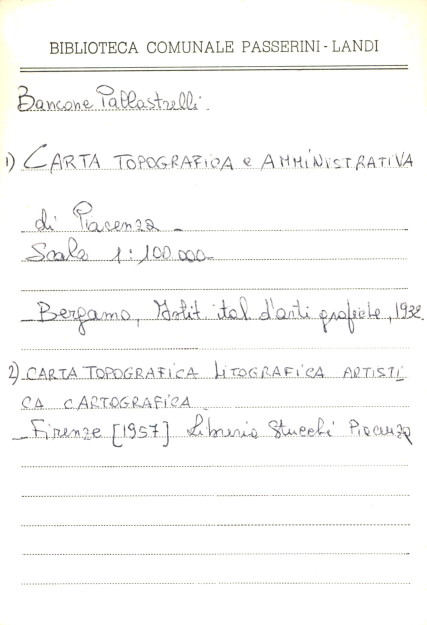 BIBLIOTECA COMUNALE PASSERINI-LANDI
Bancone Pallastrelli.
1) CARTA TOPOGRAFICA e AMMINISTRATIVA
di Piacenza -
Scala 1:100.000
- Bergamo, Istit. ital. d'arti grafiche, 1932
2) CARTA TOPOGRAFICA LITOGRAFICA ARTISTI
CA CARTOGRAFICA
- Firenze [1957] Libreria Stucchi Piacenza